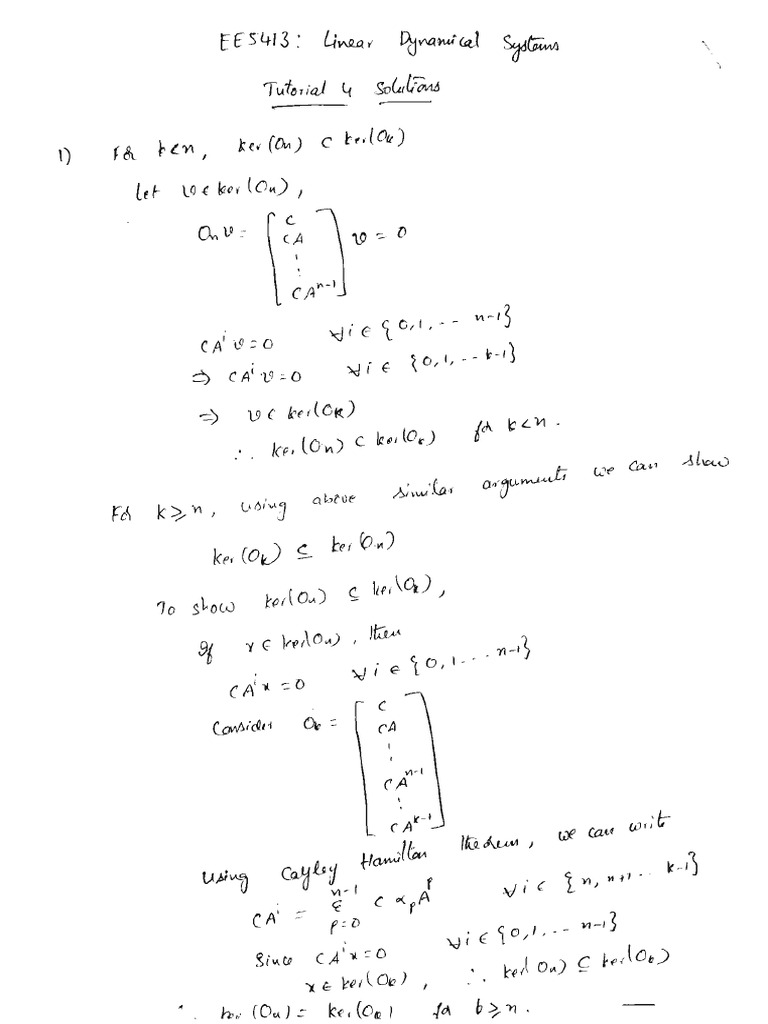 EE5413: Linear Dynamical Systems
Tutorial 4 Solutions
1) For k<n, ker(On) ⊂ ker(Ok)
Let v ∈ ker(On),
On v = [ C
CA
⋮
CA^{n-1} ] v = 0
CA^i v = 0 ∀ i ∈ {0,1, -- n-1}
⇒ CA^i v = 0 ∀ i ∈ {0,1, -- k-1}
⇒ v ∈ ker(Ok)
∴ ker(On) ⊂ ker(Ok) for k<n.
For k ≥ n, using above similar arguments we can show
ker(Ok) ⊆ ker(On)
To show ker(On) ⊆ ker(Ok),
If x ∈ ker(On), then
CA^i x = 0 ∀ i ∈ {0,1 ... n-1}
Consider Ok = [ C
CA
⋮
CA^{n-1}
⋮
CA^{k-1} ]
Using Cayley Hamilton theorem, we can write
CA^i = Σ_{p=0}^{n-1} C α_p A^p ∀ i ∈ {n, n+1 .. k-1}
Since CA^i x = 0 ∀ i ∈ {0,1, .. n-1}
x ∈ ker(Ok), ∴ ker(On) ⊆ ker(Ok)
∴ ker(On) = ker(Ok) for k ≥ n.